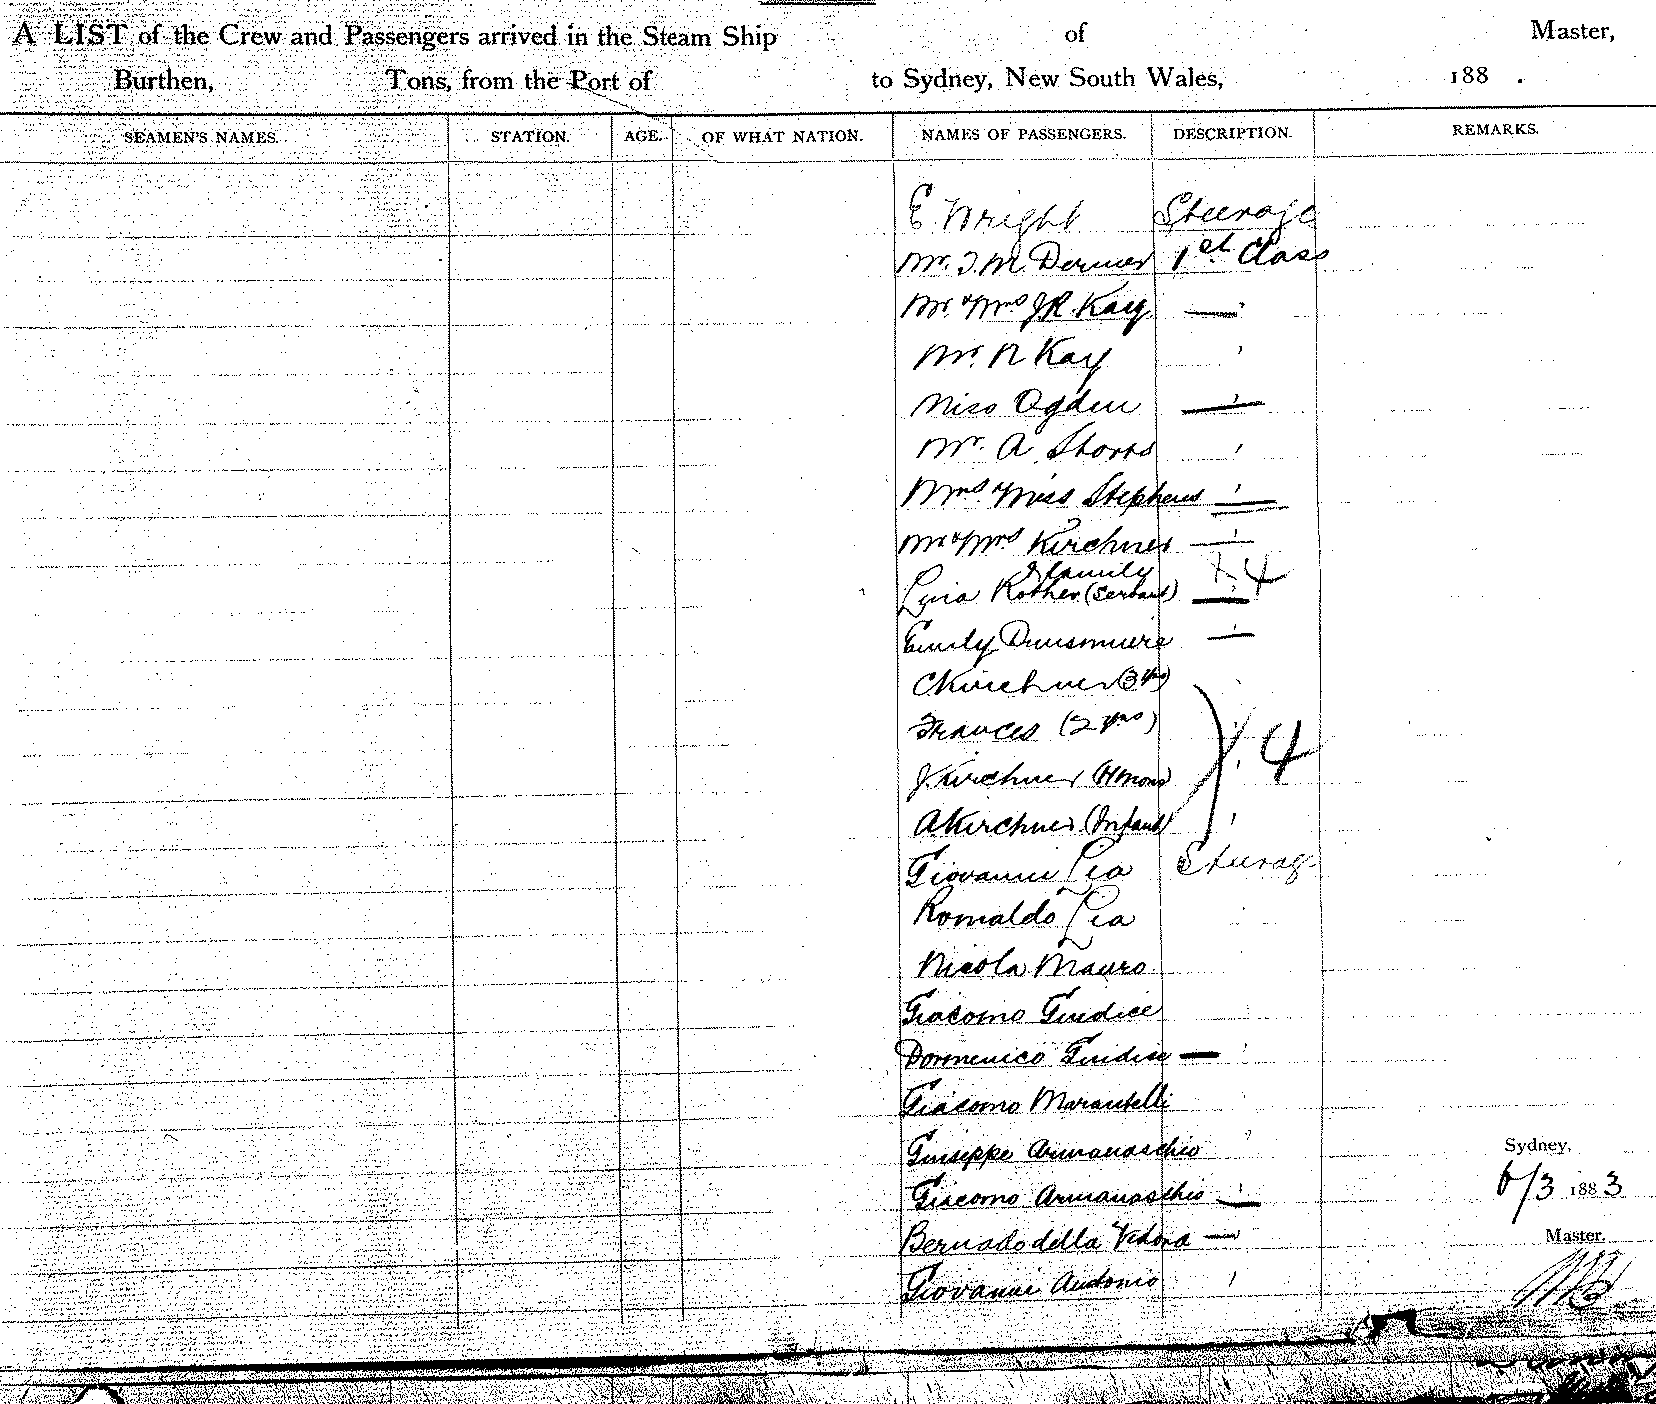 A LIST of the Crew and Passengers arrived in the Steam Ship of Master,
Burthen, Tons, from the Port of to Sydney, New South Wales, 188 .
SEAMEN'S NAMES. STATION. AGE. OF WHAT NATION. NAMES OF PASSENGERS. DESCRIPTION. REMARKS.
E Wright Steerage
Mr. J. M. Dermer 1st Class
Mr. & Mrs J R Kay —
Mr. R Kay '
Miss Ogden —
Mr. A Storrs '
Mrs & Miss Stephens '
Mr & Mrs Kirchner —
& family 4
Lina Rother (Servant) —
Emily Dunsmuire —
C Kirchner (3 yrs)
Frances (2 yrs)
J Kirchner 4
A Kirchner (Infant) '
Giovanni Lia Steerag
Romaldo Lia
Nicola Mauro
Giacomo Giudice
Dommenico Giudice —
Giacomo Marantelli
Giuseppe Armanaschio
Sydney,
Giacomo Armanaschio —
6/3 1883
Bernado della Vedova —
Master.
Giovanni Andonio '